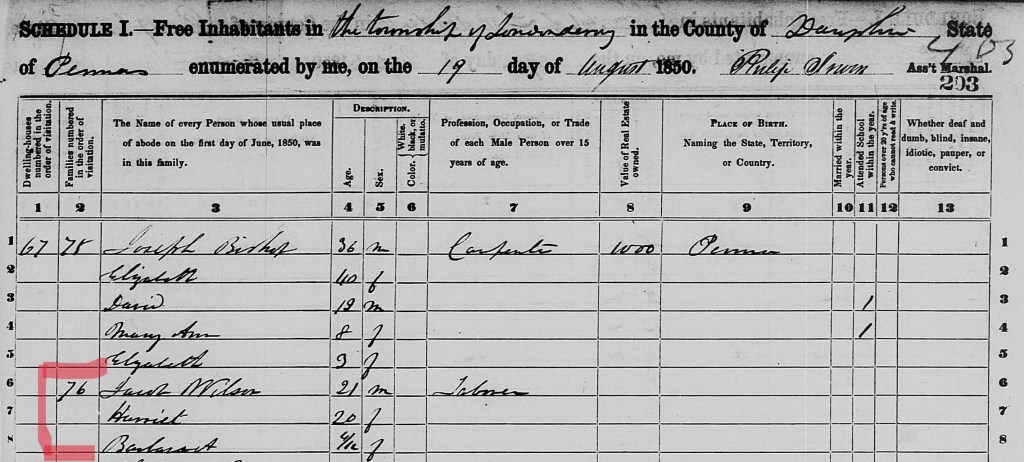 SCHEDULE I.—Free Inhabitants in the township of Londonderry in the County of Dauphin State
of Penna enumerated by me, on the 19 day of August 1850. Philip Irwin Ass't Marshal.
403
293
Dwelling-houses numbered in the order of visitation.
Families numbered in the order of visitation.
The Name of every Person whose usual place of abode on the first day of June, 1850, was in this family.
DESCRIPTION.
Age.
Sex.
Color. White, black, or mulatto.
Profession, Occupation, or Trade of each Male Person over 15 years of age.
Value of Real Estate owned.
PLACE OF BIRTH. Naming the State, Territory, or Country.
Married within the year.
Attended School within the year.
Persons over 20 y'rs of age who cannot read & write.
Whether deaf and dumb, blind, insane, idiotic, pauper, or convict.
1 2 3 4 5 6 7 8 9 10 11 12 13
1 67 78 Joseph Bishop 36 m Carpenter 1000 Penna 1
2 Elizabeth 40 f 2
3 David 12 m 1 3
4 Mary Ann 8 f 1 4
5 Elizabeth 3 f 5
6 76 Jacob Wilson 21 m Laborer 6
7 Harriet 20 f 7
f 8